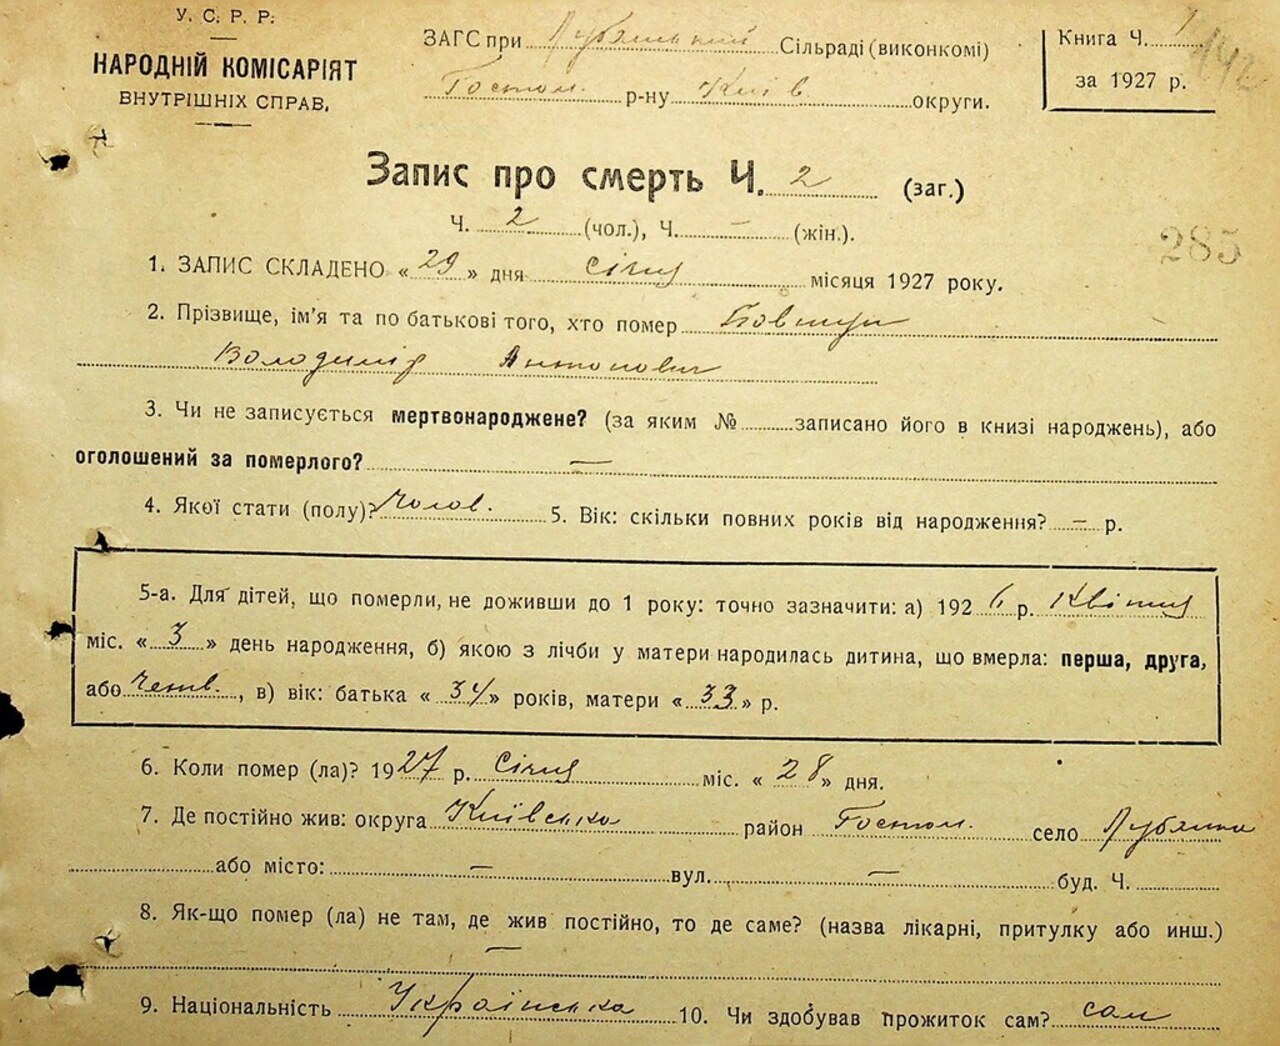 У. С. Р. Р.
НАРОДНІЙ КОМІСАРІЯТ
ВНУТРІШНІХ СПРАВ.
ЗАГС при Лубянський Сільраді (виконкомі)
Гостом. р-ну Київ округи.
Книга Ч. 1
за 1927 р.
142
Запис про смерть Ч. 2 (заг.)
Ч. 2 (чол.), Ч. – (жін.).
285
1. ЗАПИС СКЛАДЕНО « 29 » дня січня місяця 1927 року.
2. Прізвище, ім'я та по батькові того, хто помер
Володимір Антонович
3. Чи не записується мертвонароджене? (за яким № записано його в книзі народжень), або
оголошений за померлого? –
4. Якої стати (полу)? Чолов. 5. Вік: скільки повних років від народження? – р.
5-а. Для дітей, що померли, не доживши до 1 року: точно зазначити: а) 192 6 р. Квітня
міс. « 3 » день народження, б) якою з лічби у матери народилась дитина, що вмерла: перша, друга,
або четв. , в) вік: батька « 34 » років, матери « 33 » р.
6. Коли помер (ла)? 1927 р. Січня міс. « 28 » дня.
7. Де постійно жив: округа Київська район Гостом. село Лубянка
або місто: – вул. – буд. Ч.
8. Як-що помер (ла) не там, де жив постійно, то де саме? (назва лікарні, притулку або инш.)
–
9. Національність Українська 10. Чи здобував прожиток сам? сам